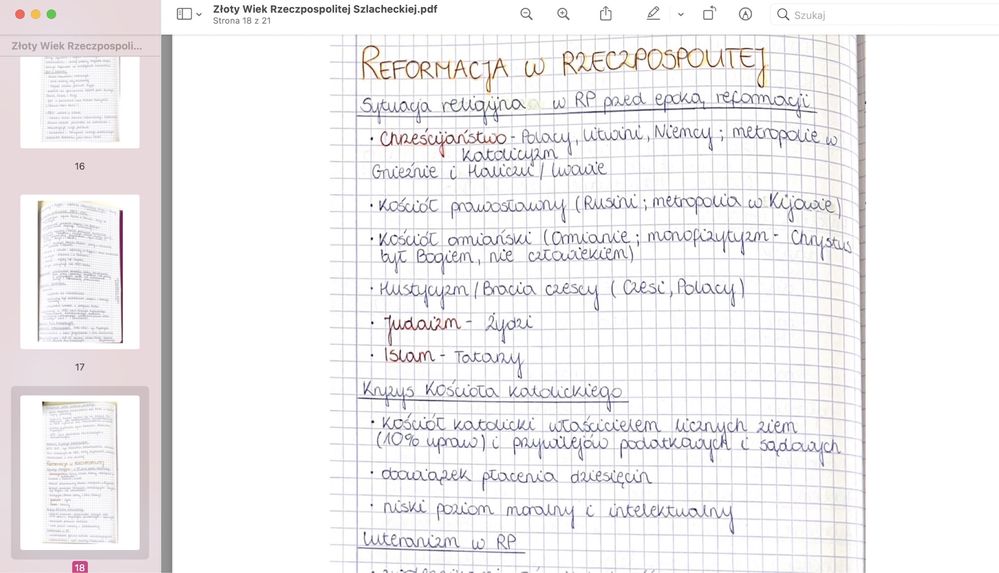 Złoty Wiek Rzeczpospolitej Szlacheckiej.pdf
Strona 18 z 21
Szukaj
Złoty Wiek Rzeczpospoli...
16
17
18
REFORMACJA W RZECZPOSPOLITEJ
Sytuacja religijna w RP przed epoką reformacji
• Chrześcijaństwo - Polacy, Litwini, Niemcy; metropolie w
Katolicyzm
Gnieźnie i Haliczu/Lwowie
• Kościół prawosławny (Rusini; metropolia w Kijowie)
• Kościół ormiański (Ormianie; monofizytyzm - Chrystus
był Bogiem, nie człowiekiem)
• Husycyzm/Bracia czescy (Czesi, Polacy)
• Judaizm - Żydzi
• Islam - Tatarzy
Kryzys Kościoła katolickiego
• Kościół katolicki właścicielem licznych ziem
(10% upraw) i przywilejów podatkowych i sądowych
• obowiązek płacenia dziesięcin
• niski poziom moralny i intelektualny
Luteranizm w RP